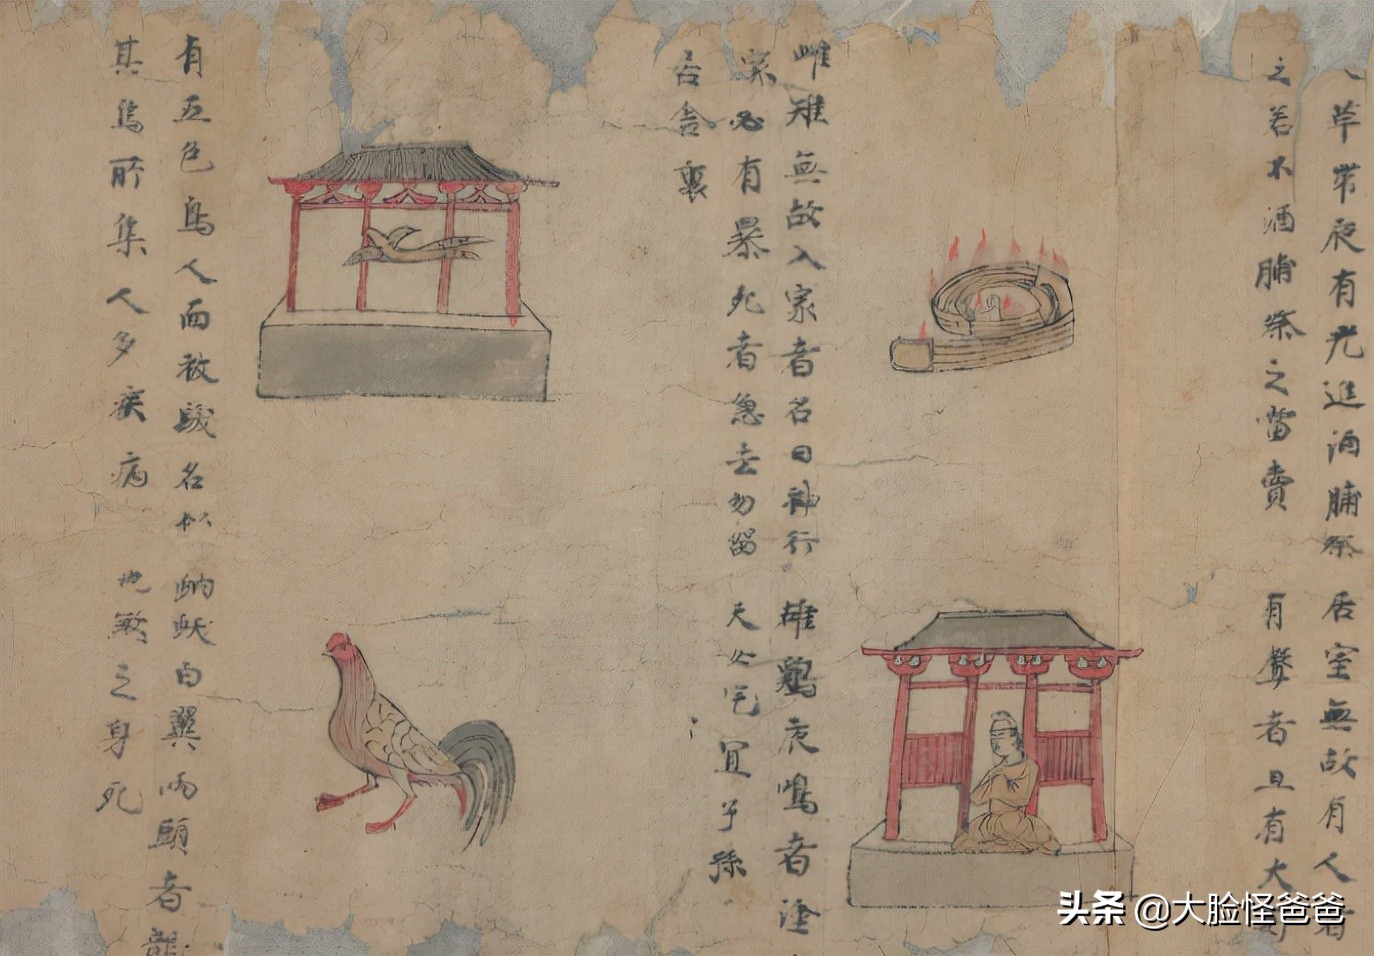 草帶夜有光進酒脯祭
之若不酒脯祭之當賣
居室無故有人者
有聲者且有大
雌雉無故入家者名曰神行
家必有暴死者急去勿留
居舍裏
雄鷄夜鳴者塗
天必宜子孫
有五色鳥人面被髮名
其鳥所集人多疾病
白翼兩頭者
也煞之身死
头条 @大脸怪爸爸